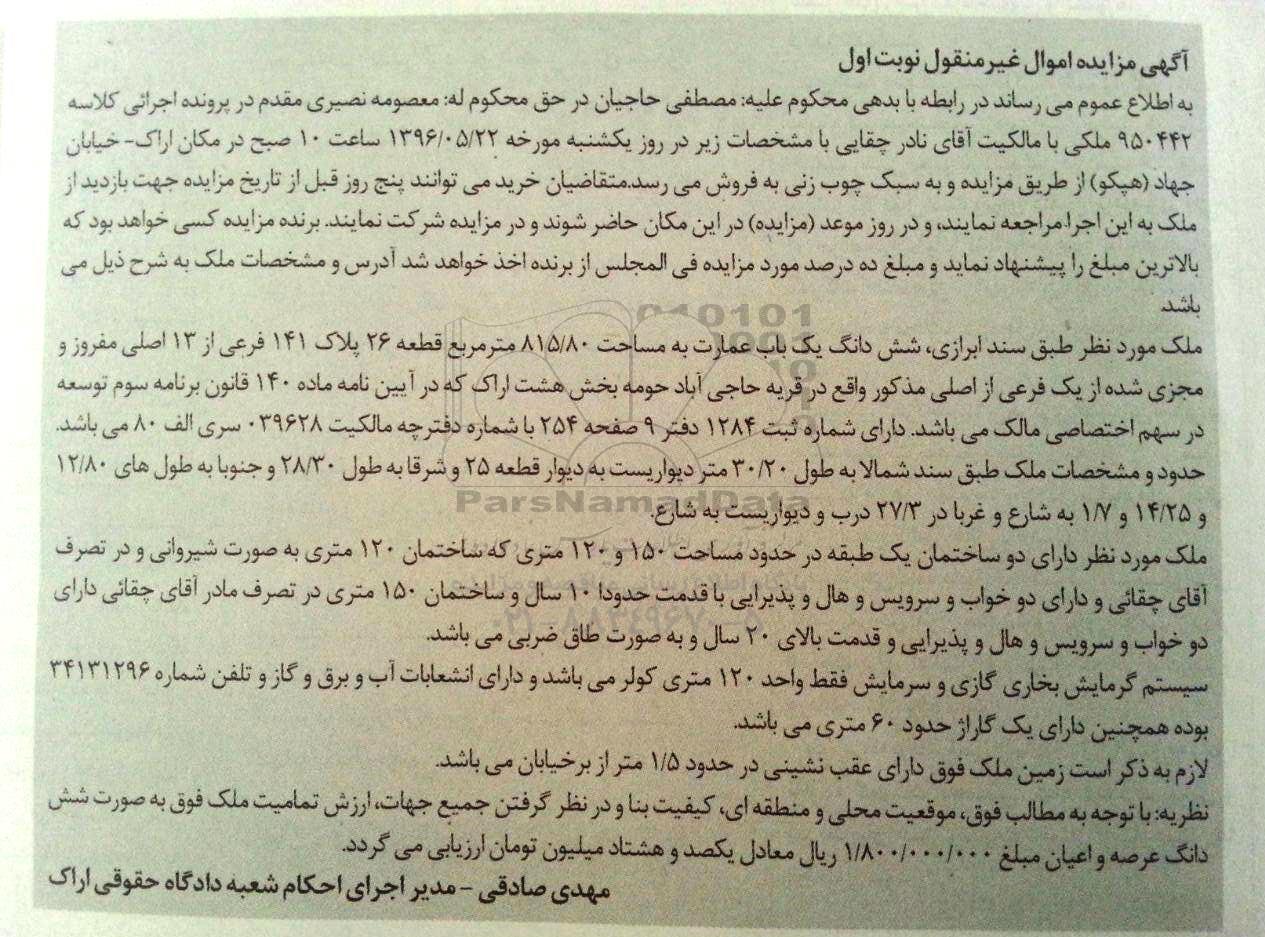 آگهی مزایده اموال غیرمنقول نوبت اول
به اطلاع عموم می رساند در رابطه با بدهی محکوم علیه: مصطفی حاجیان در حق محکوم له: معصومه نصیری مقدم در پرونده اجرائی کلاسه
۹۵۰۴۴۲ ملکی با مالکیت آقای نادر چقایی با مشخصات زیر در روز یکشنبه مورخه ۱۳۹۶/۰۵/۲۲ ساعت ۱۰ صبح در مکان اراک- خیابان
جهاد (هپکو) از طریق مزایده و به سبک چوب زنی به فروش می رسد.متقاضیان خرید می توانند پنج روز قبل از تاریخ مزایده جهت بازدید از
ملک به این اجرا مراجعه نمایند، و در روز موعد (مزایده) در این مکان حاضر شوند و در مزایده شرکت نمایند. برنده مزایده کسی خواهد بود که
بالاترین مبلغ را پیشنهاد نماید و مبلغ ده درصد مورد مزایده فی المجلس از برنده اخذ خواهد شد آدرس و مشخصات ملک به شرح ذیل می
باشد.
ملک مورد نظر طبق سند ابرازی، شش دانگ یک باب عمارت به مساحت ۸۱۵/۸۰ مترمربع قطعه ۲۶ پلاک ۱۴۱ فرعی از ۱۳ اصلی مفروز و
مجزی شده از یک فرعی از اصلی مذکور واقع در قریه حاجی آباد حومه بخش هشت اراک که در آیین نامه ماده ۱۴۰ قانون برنامه سوم توسعه
در سهم اختصاصی مالک می باشد. دارای شماره ثبت ۱۲۸۴ دفتر ۹ صفحه ۲۵۴ با شماره دفترچه مالکیت ۰۳۹۶۲۸ سری الف ۸۰ می باشد.
حدود و مشخصات ملک طبق سند شمالا به طول ۳۰/۲۰ متر دیواریست به دیوار قطعه ۲۵ و شرقا به طول ۲۸/۳۰ و جنوبا به طول های ۱۲/۸۰
و ۱۴/۲۵ و ۱/۷ به شارع و غربا در ۲۷/۳ درب و دیواریست به شارع.
ParsNamadData
ملک مورد نظر دارای دو ساختمان یک طبقه در حدود مساحت ۱۵۰ و ۱۲۰ متری که ساختمان ۱۲۰ متری به صورت شیروانی و در تصرف
آقای چقائی و دارای دو خواب و سرویس و هال و پذیرایی با قدمت حدودا ۱۰ سال و ساختمان ۱۵۰ متری در تصرف مادر آقای چقائی دارای
دو خواب و سرویس و هال و پذیرایی و قدمت بالای ۲۰ سال و به صورت طاق ضربی می باشد.
سیستم گرمایش بخاری گازی و سرمایش فقط واحد ۱۲۰ متری کولر می باشد و دارای انشعابات آب و برق و گاز و تلفن شماره ۳۴۱۳۱۲۹۶
بوده همچنین دارای یک گاراژ حدود ۶۰ متری می باشد.
لازم به ذکر است زمین ملک فوق دارای عقب نشینی در حدود ۱/۵ متر از برخیابان می باشد.
نظریه: با توجه به مطالب فوق، موقعیت محلی و منطقه ای، کیفیت بنا و در نظر گرفتن جمیع جهات، ارزش تمامیت ملک فوق به صورت شش
دانگ عرصه و اعیان مبلغ ۱/۸۰۰/۰۰۰/۰۰۰ ریال معادل یکصد و هشتاد میلیون تومان ارزیابی می گردد.
مهدی صادقی - مدیر اجرای احکام شعبه دادگاه حقوقی اراک